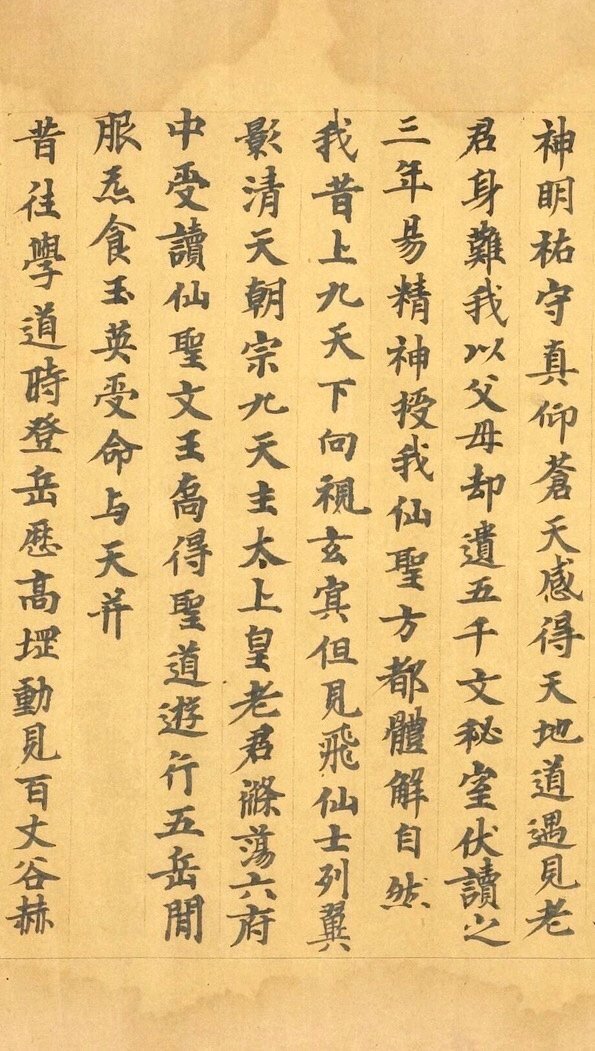 神明祐守真仰蒼天感得天地道遇見老
君身難我以父母却遺五千文秘室伏讀之
三年易精神授我仙聖方都體解自然
我昔上九天下向視玄寘但見飛仙士列翼
影清天朝宗九天主太上皇老君滌蕩六府
中受讀仙聖文王喬得聖道遊行五岳間
服炁食玉英受命与天并
昔往學道時登岳歷高堽動見百丈谷赫